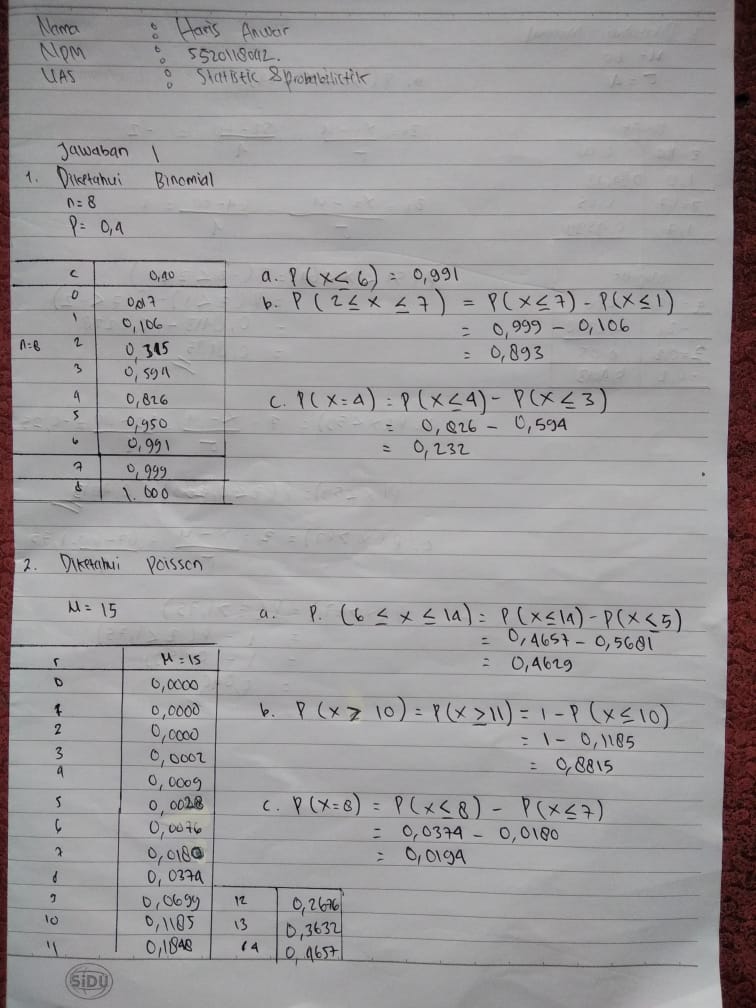 Nama : Haris Anwar
NPM : 5520118042.
UAS : Statistik & probabilistik
Jawaban 1
1. Diketahui Binomial
n=8
P= 0,4
c 0,40
0 0,017
1 0,106
n=8 2 0,315
3 0,594
4 0,826
5 0,950
6 0,991
7 0,999
8 1.000
a. P(x≤6) = 0,991
b. P(2≤x≤7) = P(x≤7) - P(x≤1)
= 0,999 - 0,106
= 0,893
c. P(x=4) = P(x≤4) - P(x≤3)
= 0,826 - 0,594
= 0,232
2. Diketahui Poisson
M = 15
r M = 15
0 0,0000
1 0,0000
2 0,0000
3 0,0002
4 0,0009
5 0,0028
6 0,0076
7 0,0180
8 0,0374
9 0,0699
10 0,1185
11 0,1848
12 0,2676
13 0,3632
14 0,4657
a. P. (6 ≤ x ≤ 14) = P(x≤14) - P(x≤5)
= 0,4657 - 0,5681
= 0,4629
b. P(x ≥ 10) = P(x ≥ 11) = 1 - P(x≤10)
= 1 - 0,1185
= 0,8815
c. P(x=8) = P(x≤8) - P(x≤7)
= 0,0374 - 0,0180
= 0,0194
SiDU